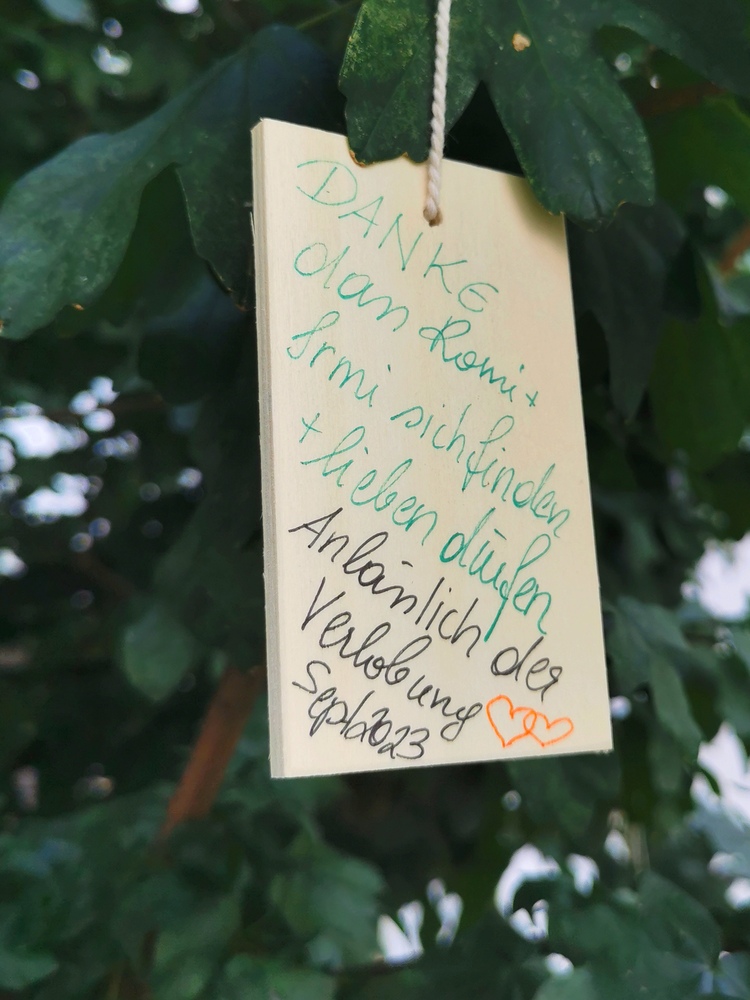 DANKE
dan Romi +
Irmi sich finden
+ lieben dürfen
Anläßlich der
Verlobung
Sept 2023